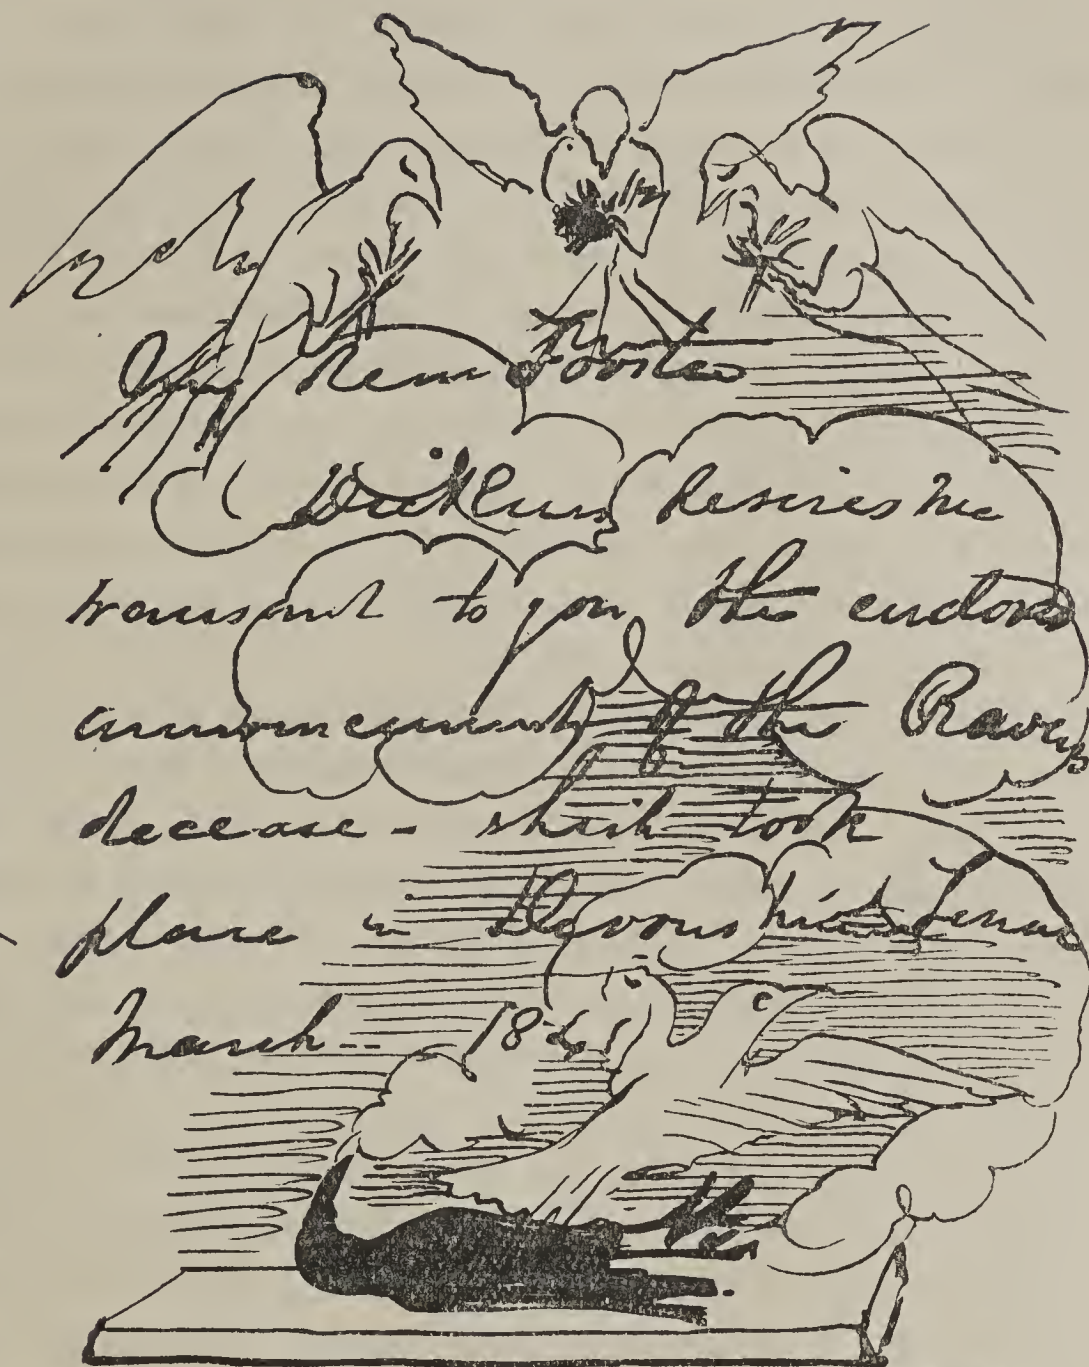 My dear Forster
Dickens desires me
transmit to you the enclosed
announcement of the Ravens
decease - which took
place in Devonshire Terrace
March -- 1841